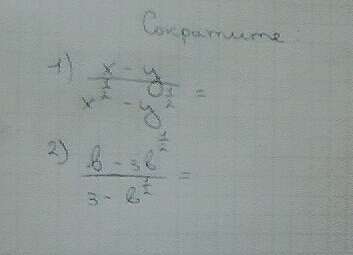 Сократите:
1) x - y
x^{1/2} - y^{1/2} =
2) в - 3в^{1/2}
3 - в^{1/2} =